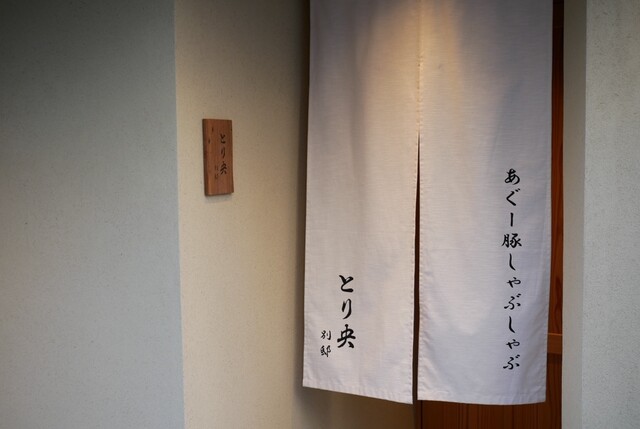 あぐー豚しゃぶしゃぶ
とり央
別邸
とり央